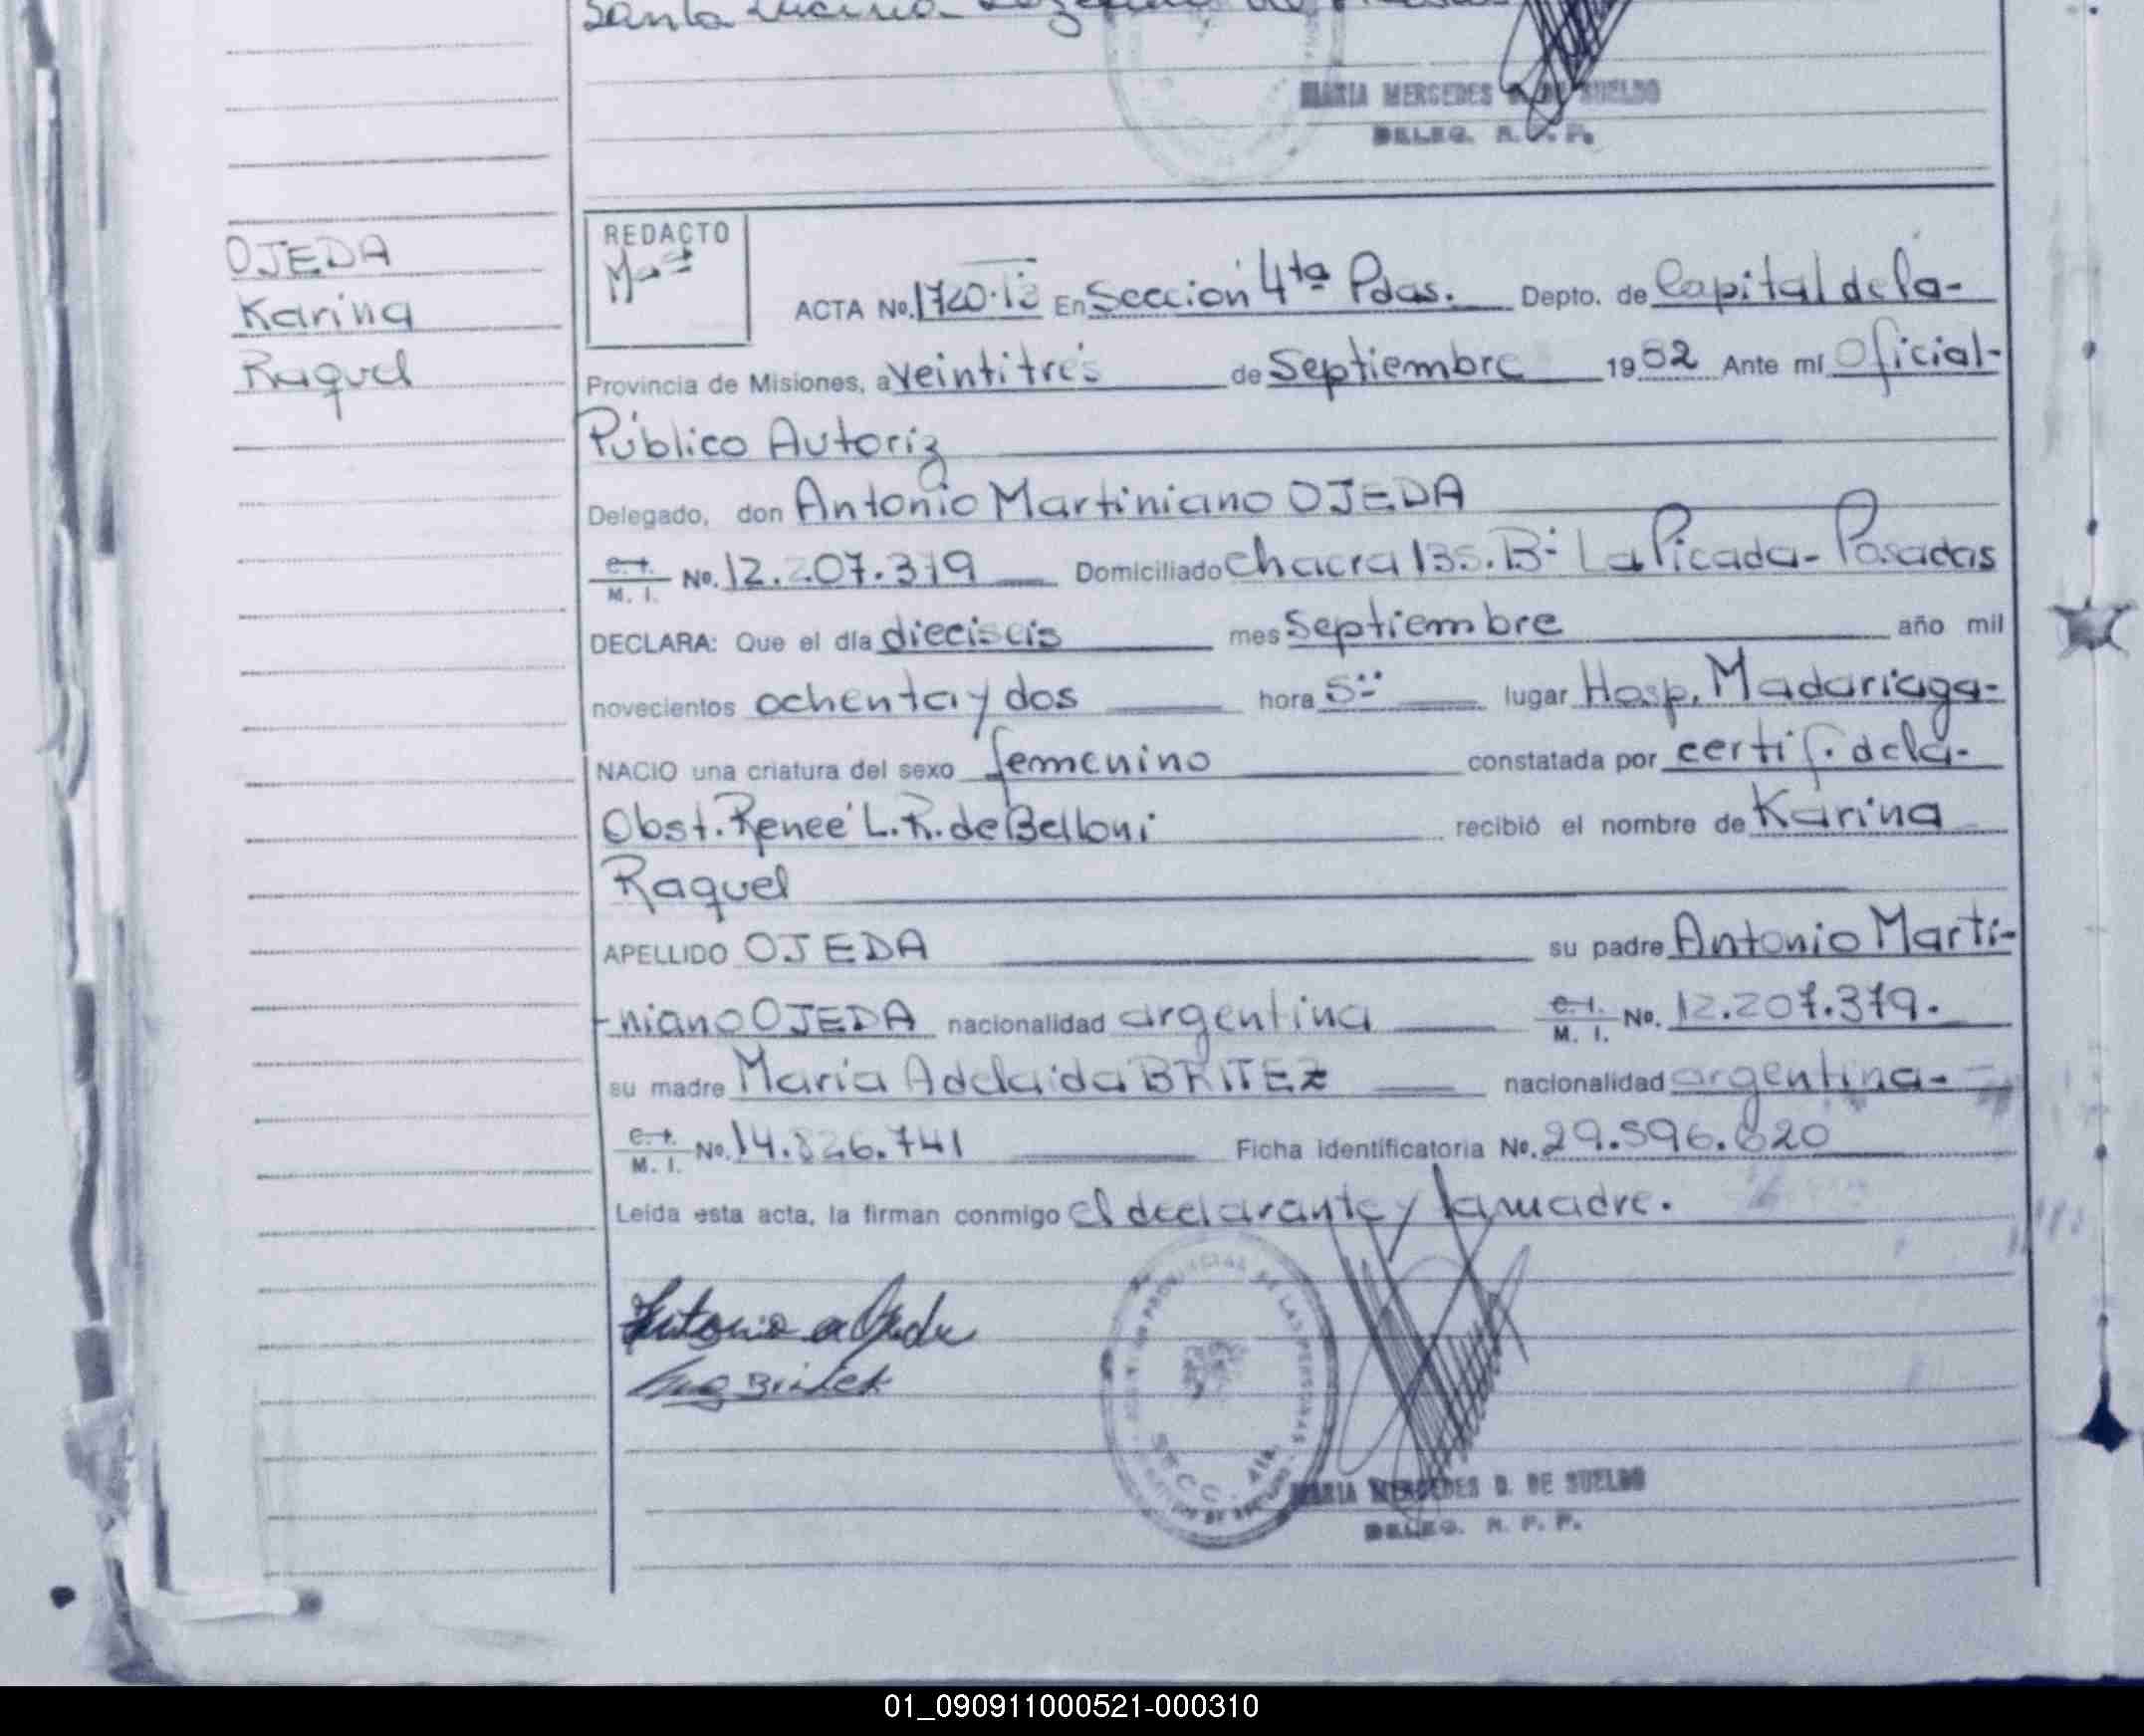 Santa
MARIA MERCEDES D. DE SUELDO
DELEG. R. P. P.
OJEDA
Karina
Raquel
REDACTO
ACTA No. 1720· En Sección 4ta Pdas. Depto. de Capital de la-
Provincia de Misiones, a veintitrés de Septiembre 1982 Ante mí Oficial-
Público Autoriz
Delegado, don Antonio Martiniano OJEDA
C. I. M. I. No. 12.207.379 Domiciliado chacra 135. Bº La Picada- Posadas
DECLARA: Que el día dieciseis mes Septiembre año mil
novecientos ochenta y dos hora 5 lugar Hosp. Madariaga-
NACIO una criatura del sexo femenino constatada por certif. de la-
Obst. Reneé L. R. de Belloni recibió el nombre de Karina
Raquel
APELLIDO OJEDA su padre Antonio Marti-
-niano OJEDA nacionalidad argentina C. I. M. I. No. 12.207.379.
su madre María Adelaida BRITEZ nacionalidad argentina-
C. I. M. I. No. 14.826.741 Ficha identificatoria No. 29.596.620
Leída esta acta, la firman conmigo el declarante y la madre.
Antonio Ojeda
Britek
PROVINCIAL DE LAS PERSONAS
SECC. 4ta.
MARIA MERCEDES D. DE SUELDO
DELEG. R. P. P.
01_090911000521-000310